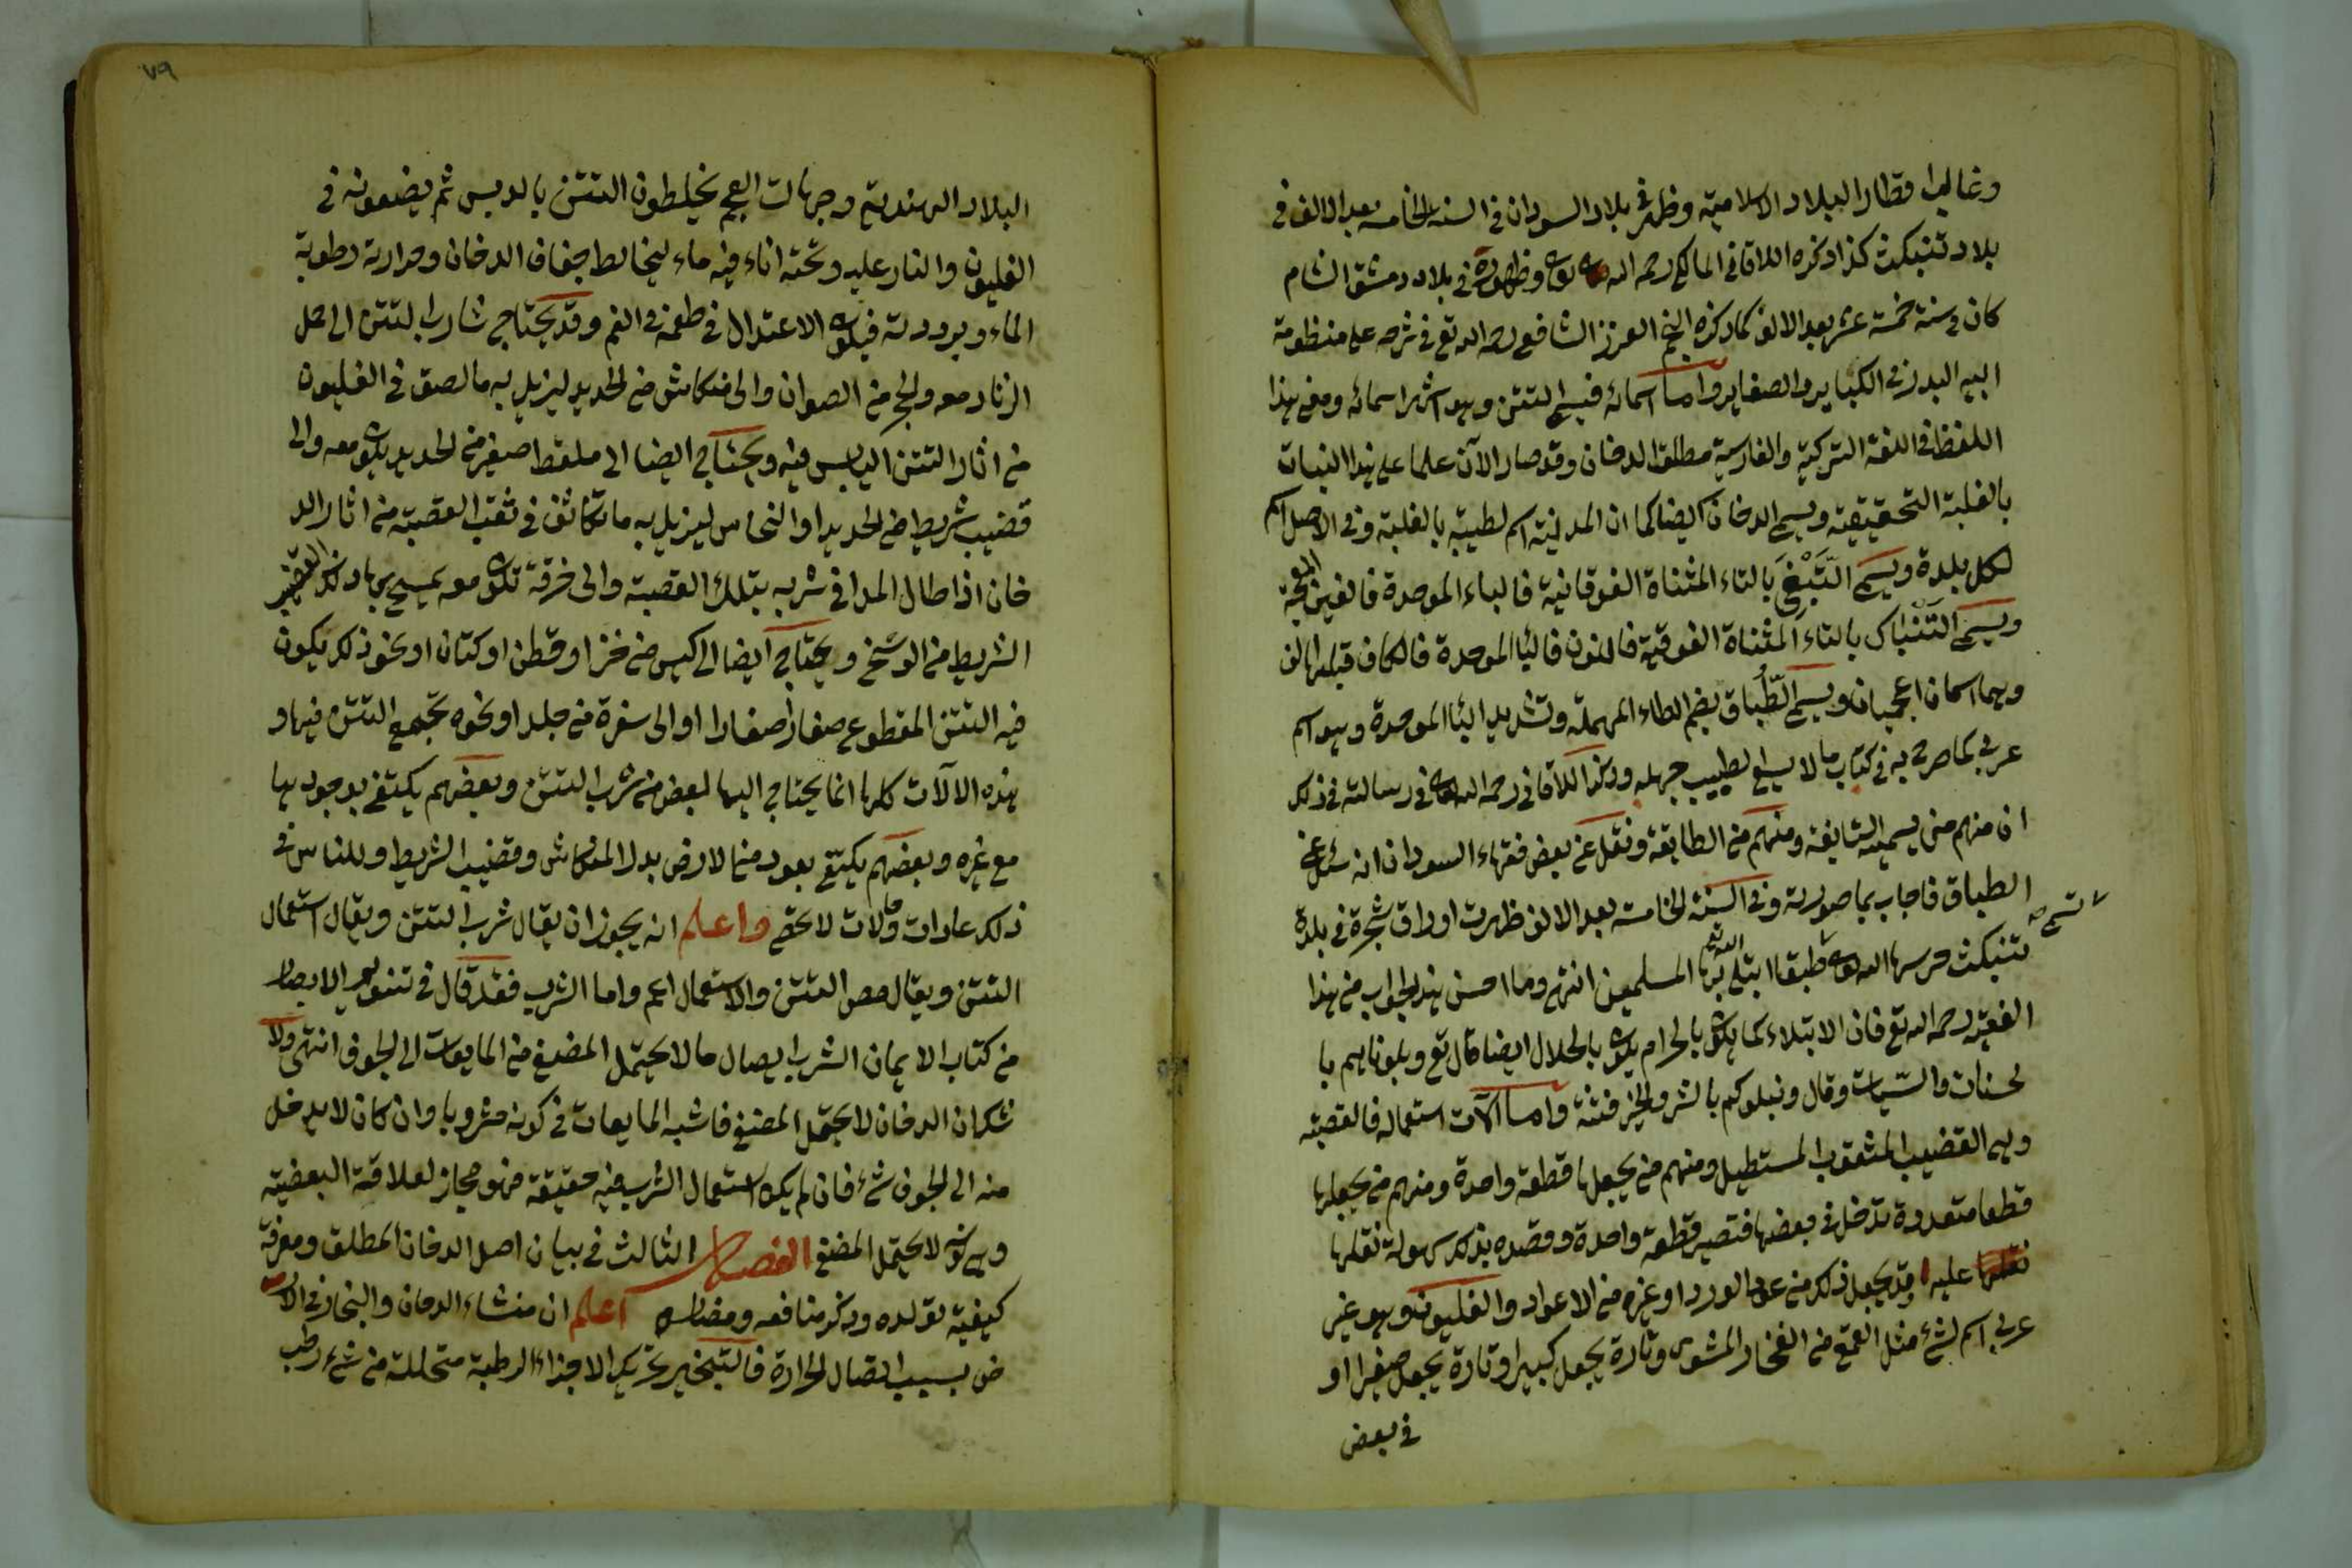 وغالب اقطار البلاد الاسلامية وظهر في بلاد السودان في السنة الخامسة بعد الالف في
بلاد تنبكت كذا ذكره اللاقاني المالكي رحمه الله تعالى وظهوره في بلاد دمشق الشام
كان في سنة خمسة عشر بعد الالف كما ذكره النجم الغزي الشافعي رحمه الله تع في شرحه على منظومة
ابيه البدر في الكباير والصغاير واما اسمائه فيسمى التتن وهو اشهر اسمائه ومعنى هذا
اللفظ في اللغة التركية والفارسية مطلق الدخان وقد صار الآن علما على هذا النبات
بالغلبة التحقيقية ويسمى الدخان ايضا كما ان المدينة اسم لطيبة بالغلبة وفي الاصل اسم
لكل بلدة ويسمى التَّبْغَ بالتاء المثناة الفوقانية فالباء الموحدة فالغين المعجمة
ويسمى التَنْباك بالتاء المثناة الفوقية فالنون فالبا الموحدة فالكاف قبلها الف
وهما اسمان اعجميان ويسمى الطُّبَاق بضم الطاء المهملة وتشديد البا الموحدة وهو اسم
عربي كما صرح به في كتاب ما لا يسع الطبيب جهله وذكر اللاقاني رحمه الله تعالى في رسالته في ذلك
ان منهم من يسميه التابغة ومنهم من الطابقة ونقل عن بعض فقهاء السودان انه سئل عن
الطباق فاجاب بما صورته وفي السنة الخامسة بعد الالف ظهرت اوراق شجرة في بلدة
تسمى صح
تنبكت حرسها الله تعالى طبقا ابتلى الله تع بها المسلمين انتهى وما احسن هذا الجواب من هذا
الفقيه رحمه الله تع فان الابتلاء كما يكون بالحرام يكون بالحلال ايضا قال تع وبلوناهم با
لحسنات والسّيات وقال ونبلوكم بالشر والخير فتنة واما آلات استعماله فالقصبة
وهي القضيب المثقوب المستطيل ومنهم من يجعلها قطعة واحدة ومنهم من يجعلها
قطعا متعددة تدخل في بعضها فتصير قطعة واحدة وقصده بذلك سهولة نقلها
نقلها عليه وقد يجعل ذلك من عود الورد او غيره من الاعواد والغليون وهو غير
عربي اسم لشئ مثل القمع من الفخار المشوى وتارة يجعل كبيرا وتارة يجعل صغيرا او
في بعض
٧٩
البلاد الهندية وجهات العجم يخلطون التتن بالدبس ثم يضعونه في
الغليون والنار عليه وتحته اناء فيه ماء ليخالط جفاف الدخان وحرارته رطوبة
الماء وبرودته فيكون الاعتدال في طعمه في الفم وقد يحتاج شارب التتن الى حمل
الزناد معه والحجر من الصوان والى منكاش من الحديد ليزيل به ما لصق في الغليون
من اثار التتن اليابس فيه ويحتاج ايضا الى ملقط صغير من الحديد يكون معه والى
قضيب شريط من الحديد او النحاس ليزيل به ما تكاثف في ثقب القصبة من اثار الد
خان اذا طال المدا في شربه بتلك القصبة والى خرقة تكون معه يمسح بها ذلك القضيب
الشريط من الوسخ ويحتاج ايضا الى كيس من خز او قطن او كتان او نحو ذلك يكون
فيه التتن المقطوع صغارا صغارا او الى سفرة من جلد او نحوه تجمع التتن فيها و
هذه الالات كلها انما يحتاج اليها لبعض من شرب التتن وبعضهم يكتفي بوجودها
مع غيره وبعضهم يكتفي بعود من الارض بدل المنكاش وقضيب الشريط وللناس في
ذلك عادات وآلات لا تحصى واعلم انه يجوز ان يقال شرب التتن ويقال استعمال
التتن ويقال مص التتن والاستعمال اعم واما الشرب فقد قال في تنوير الابصار
من كتاب الايمان الشرب ايصال ما لا يحتمل المضغ من المايعات الى الجوف انتهى ولا
شك ان الدخان لا يحتمل المضغ فاشبه المايعات في كونه مشروبا وان كان لا يدخل
منه الى الجوف شئ فان لم يكن استعمال الشرب فيه حقيقة فهو مجاز لعلاقة البعضية
وهي كونه لا يحتمل المضغ الفصل الثالث في بيان اصل الدخان المطلق ومعرفة
كيفية تولده وذكر منافعه ومضاره اعلم ان منشاء الدخان والبخار في الار
ض بسبب اتصال الحرارة فالتبخير تحريك الاجزاء الرطبة متحللة من شئ رطب